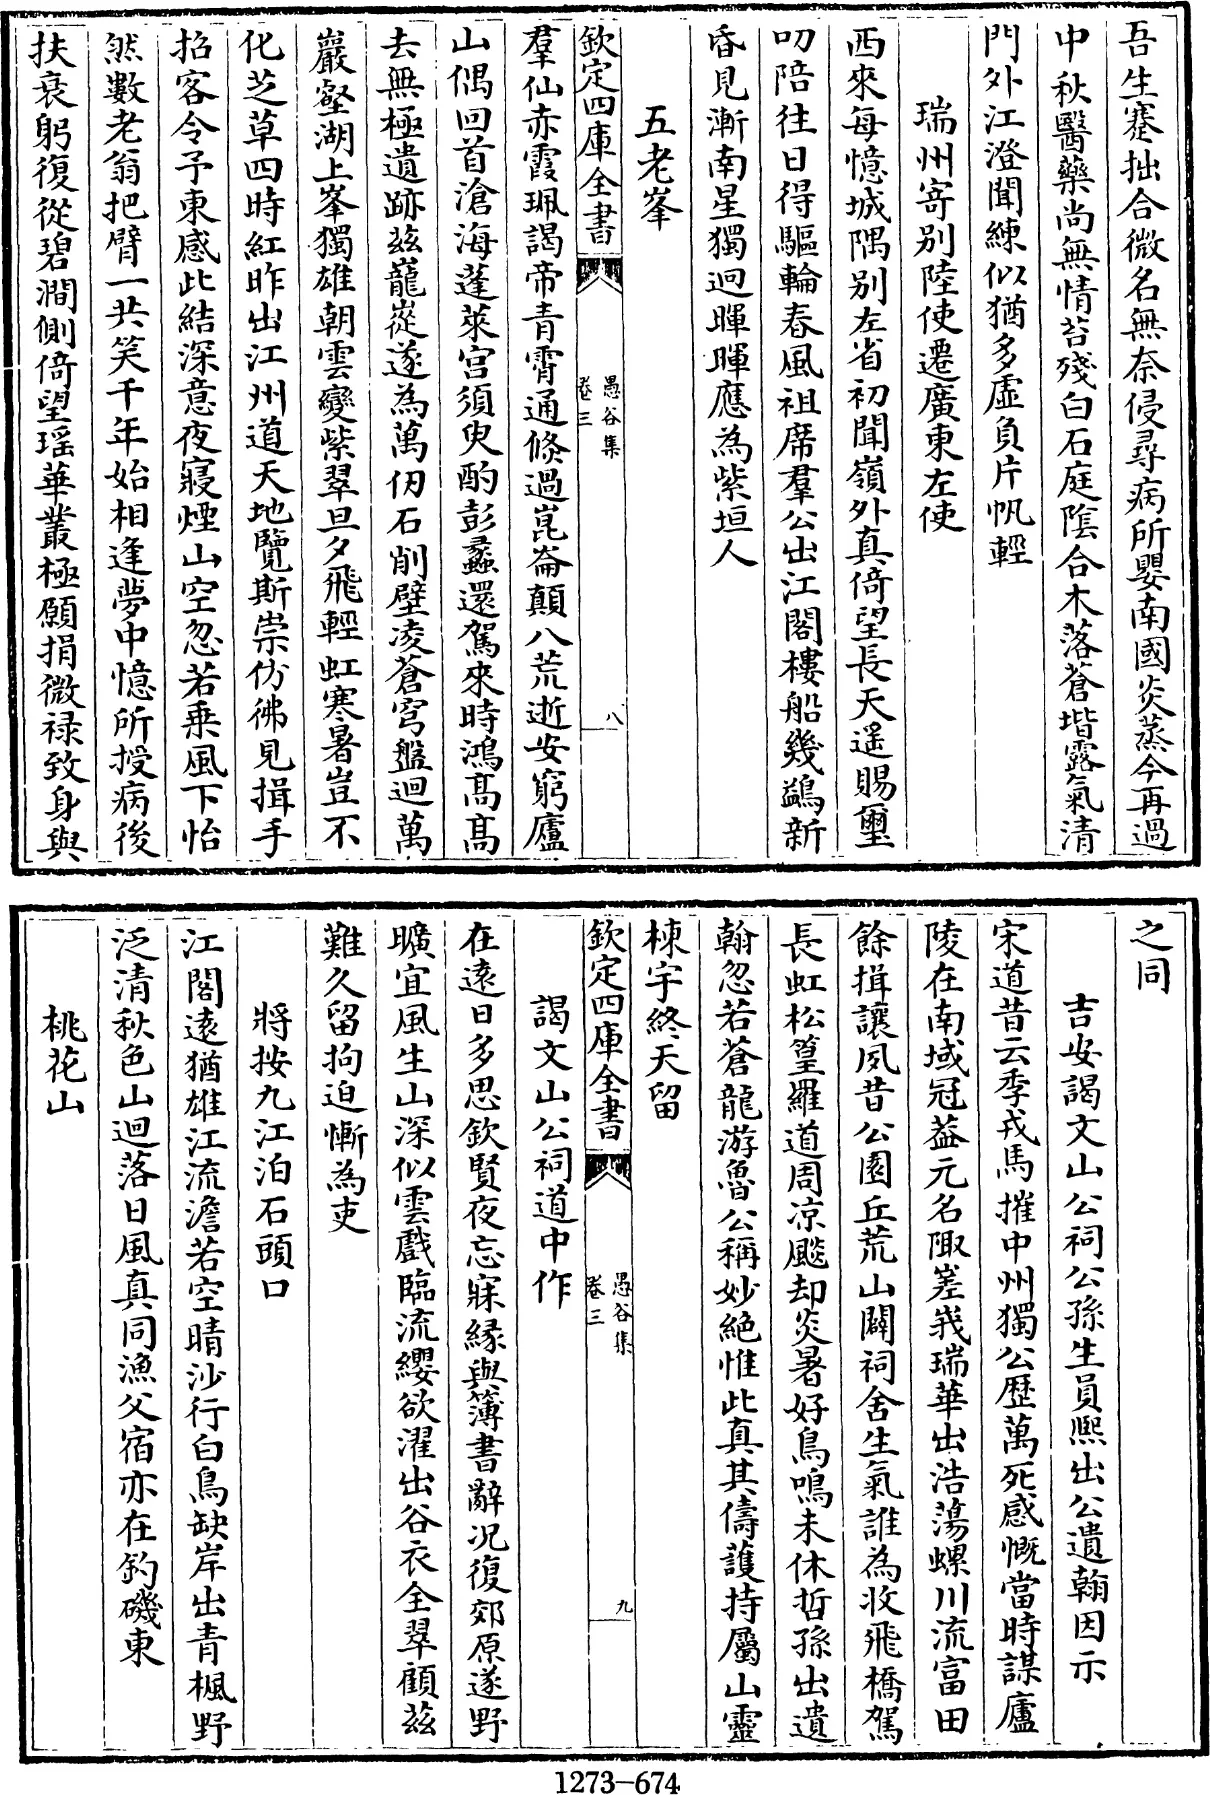 吾生蹇拙合微名無奈侵尋病所嬰南國炎蒸今再過
中秋醫藥尚無情苔殘白石庭隂合木落蒼堦露氣清
門外江澄聞練似猶多虛負片帆輕
瑞州寄别陸使遷廣東左使
西來每憶城隅别左省初聞嶺外真倚望長天遥賜璽
叨陪往日得驅輪春風祖席羣公出江閣樓船幾鷁新
昏見漸南星獨迥暉暉應為紫垣人
五老峯
欽定四庫全書
愚谷集
卷三
八
羣仙赤霞珮謁帝青霄通倏過崑崙顛八荒逝安窮廬
山偶回首滄海蓬萊宫須臾酌彭蠡還駕來時鴻髙髙
去無極遺跡兹巃嵸遂為萬仞石削壁凌蒼穹盤迴萬
巖壑湖上峯獨雄朝雲變紫翠旦夕飛輕虹寒暑豈不
化芝草四時紅昨出江州道天地覽斯崇彷彿見揖手
招客令予東感此結深意夜寢煙山空忽若乘風下怡
然數老翁把臂一共笑千年始相逢夢中憶所授病後
扶衰躬復從碧澗側倚望瑶華叢極願捐微禄致身與
之同
吉安謁文山公祠公孫生員熈出公遺翰因示
宋道昔云季戎馬摧中州獨公歴萬死感慨當時謀廬
陵在南域冠葢元名陬嵳峩瑞華出浩蕩螺川流富田
餘揖讓夙昔公園丘荒山闢祠舍生氣誰為收飛橋駕
長虹松篁羅道周凉飈却炎暑好鳥鳴未休哲孫出遺
翰忽若蒼龍游魯公稱妙絶惟此真其儔䕶持屬山靈
棟宇終天留
欽定四庫全書
愚谷集
卷三
九
謁文山公祠道中作
在遠日多思欽賢夜忘寐緣與簿書辭况復郊原遂野
曠宜風生山深似雲戲臨流纓欲濯出谷衣全翠顧兹
難久留拘迫慚為吏
將按九江泊石頭口
江閣遠猶雄江流澹若空晴沙行白鳥缺岸出青楓野
泛清秋色山迴落日風真同漁父宿亦在釣磯東
桃花山
1273-674